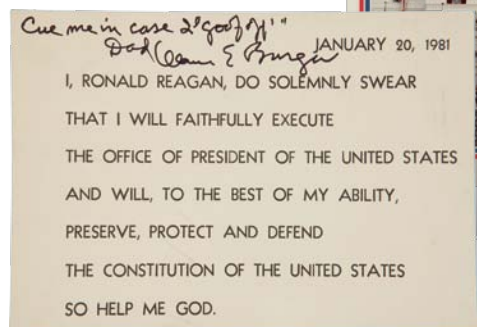 Cue me in case I "goof off"
Dad Warren E Burger
JANUARY 20, 1981
I, RONALD REAGAN, DO SOLEMNLY SWEAR
THAT I WILL FAITHFULLY EXECUTE
THE OFFICE OF PRESIDENT OF THE UNITED STATES
AND WILL, TO THE BEST OF MY ABILITY,
PRESERVE, PROTECT AND DEFEND
THE CONSTITUTION OF THE UNITED STATES
SO HELP ME GOD.